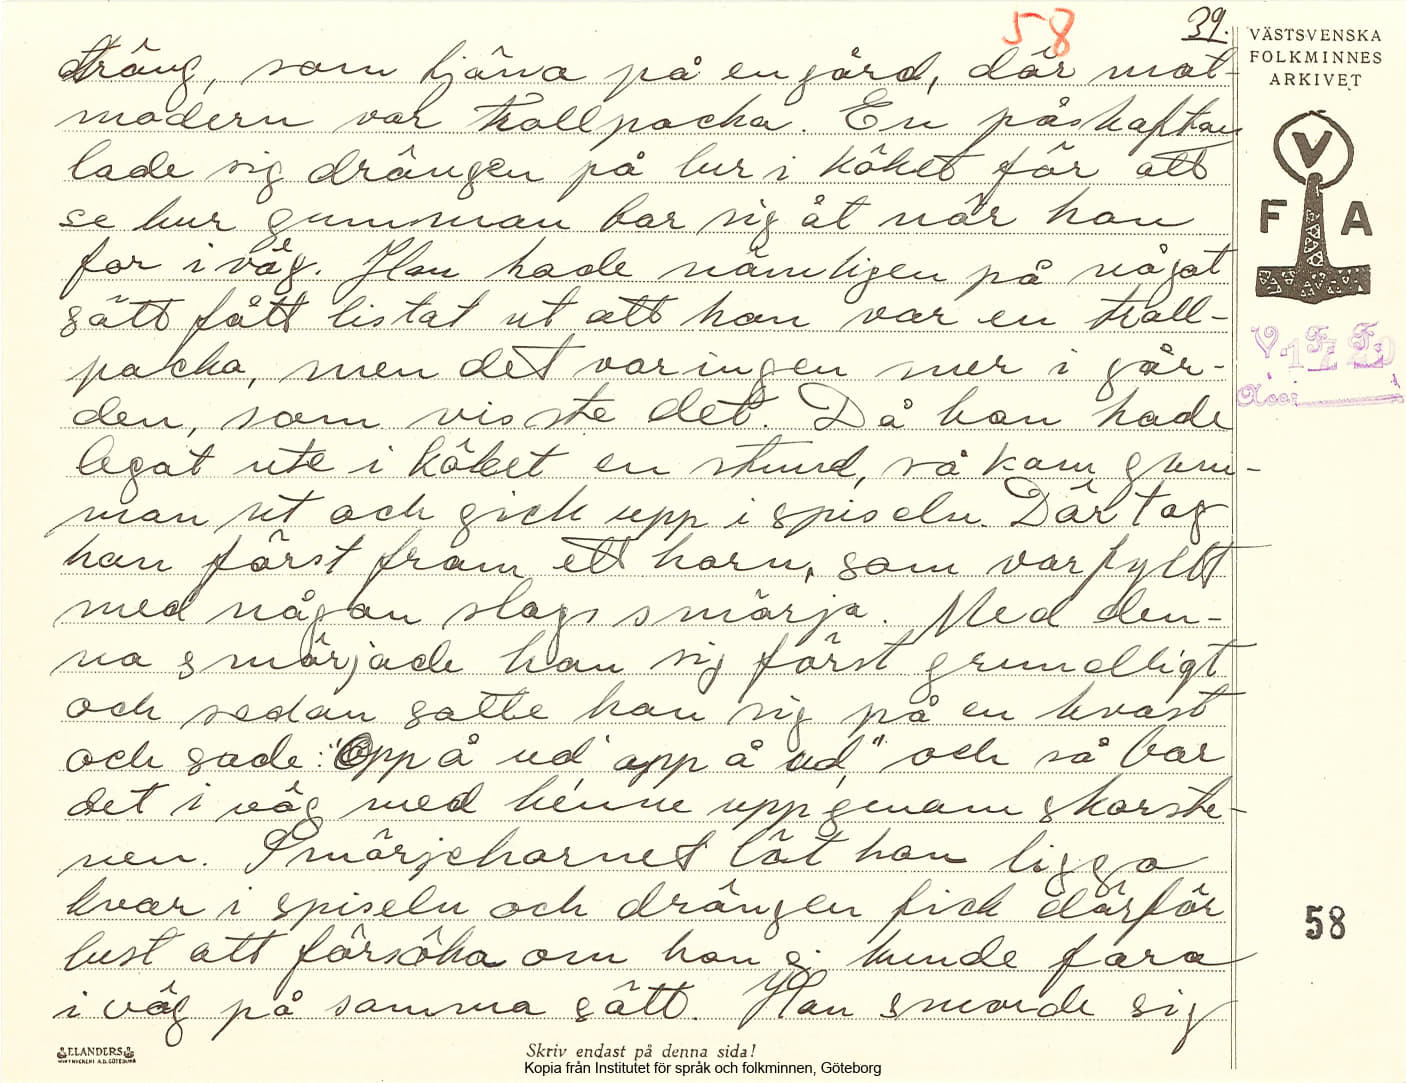 58
39.
VÄSTSVENSKA
FOLKMINNES
ARKIVET
dräng, som tjäna på en gård, där mat-
modern var trollpacka. En påskaftan
lade sig drängen på lur i köket för att
se hur gumman bar sig åt när hon
for i väg. Han hade nämligen på något
sätt fått listat ut att hon var en troll-
packa, men det var ingen mer i går-
den, som visste det. Då han hade
legat ute i köket en stund, så kom gum-
man ut och gick upp i spiseln. Där tog
hon först fram ett horn, som var fyllt
med någon slags smörja. Med den-
na smörjade hon sig först grundligt
och sedan satte hon sig på en kvast
och sade: "Opp å ud opp å ud," och så bar
det i väg med henne upp genom skorste-
nen. Smörjehornet lät hon ligga
kvar i spiseln och drängen fick därför
lust att försöka om han ej kunde fara
i väg på samma sätt. Han smorde sig
F V A
58
ELANDERS
Skriv endast på denna sida!
Kopia från Institutet för språk och folkminnen, Göteborg